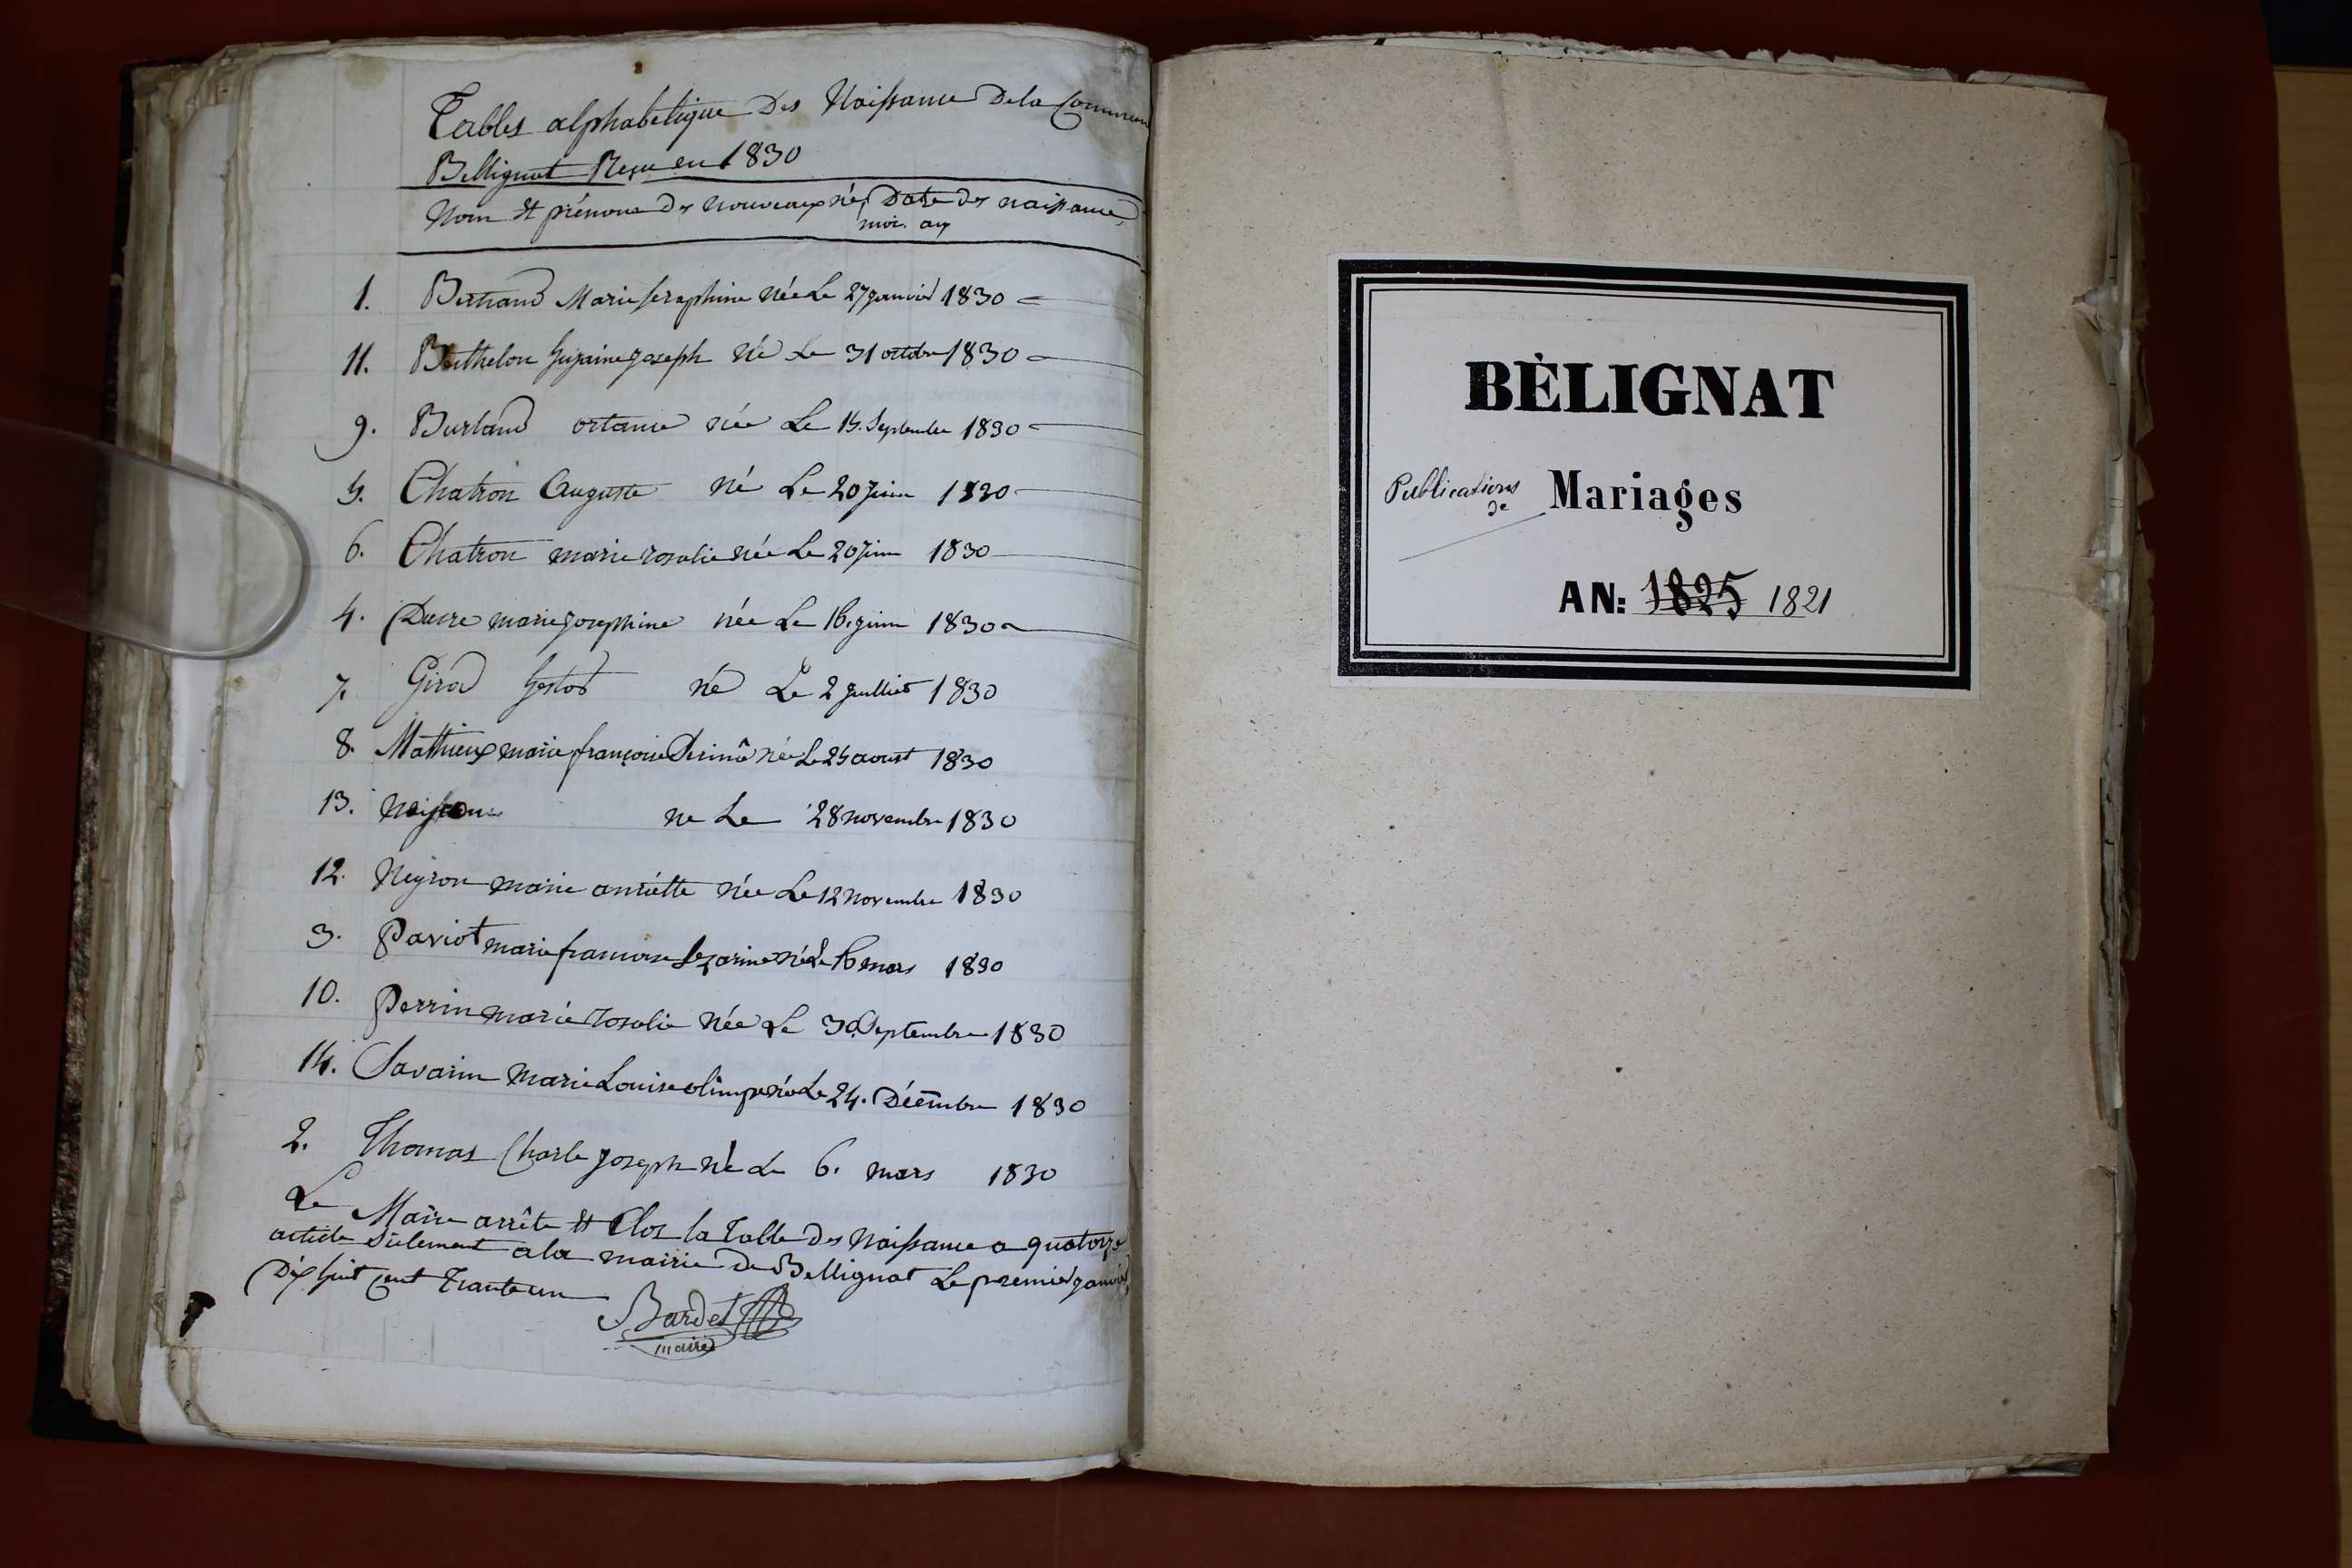 Tables alphabetique Des Naissance De la Commune
Bellignat Reçu en 1830
Nom et prénoms des nouveaux nés Date des naissances
mois. an
1. Bertrand Marie seraphine Née Le 27 janvier 1830
11. Berthelon joseph Né Le 31 octobre 1830
9. Burland ortance née Le 15. Septembre 1830
5. Chatron Auguste né Le 20 juin 1830
6. Chatron marie rosalie née Le 20 juin 1830
4. Ducre marie josephine née Le 16. juin 1830
7. Girod né Le 2 juilliet 1830
8. Mathieux marie françoise née Le 25 aoust 1830
13. ne Le 28 novembre 1830
12. Neyron marie anriette née Le 12 novembre 1830
3. Paviot marie francoise née Le 16 mars 1830
10. Perrin marie rosalie née Le 30 Septembre 1830
14. Savarin Marie Louise olimpe née Le 24. Décembre 1830
2. Thomas Charle joseph né Le 6. mars 1830
Le Maire arrête et Clos la Table des Naissance a quatorze
article seulement a la mairie de Bellignat Le premier janvier
Dix huit cent Trante un
Bardet
maire
BÈLIGNAT
Publications de Mariages
AN: 1825 1821